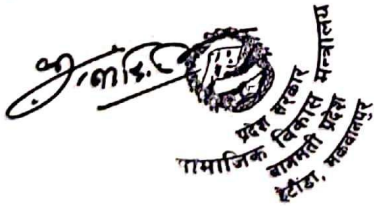 प्रदेश सरकार
सामाजिक विकास मन्त्रालय
बागमती प्रदेश
हेटौंडा, मकवानपुर